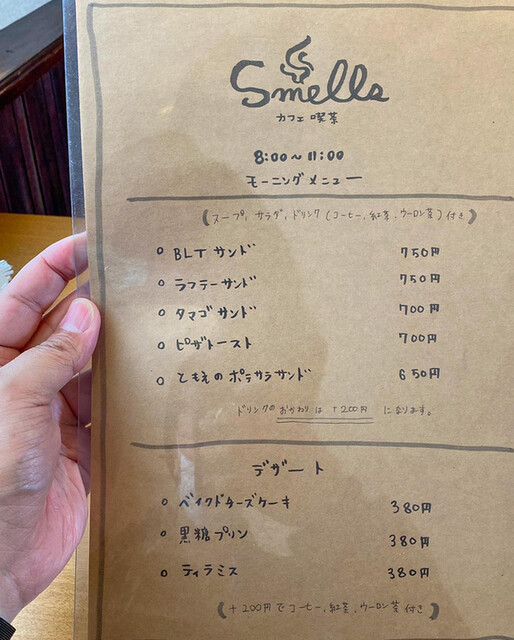 Smells
カフェ 喫茶
8:00〜11:00
モーニングメニュー
(スープ, サラダ, ドリンク (コーヒー, 紅茶, ウーロン茶) 付き)
○ BLT サンド 750円
○ ラフテーサンド 750円
○ タマゴサンド 700円
○ ピザトースト 700円
○ ともえのポテサラサンド 650円
ドリンクのおかわりは +200円 になります。
デザート
○ ベイクドチーズケーキ 380円
○ 黒糖プリン 380円
○ ティラミス 380円
(+200円でコーヒー, 紅茶, ウーロン茶 付き)